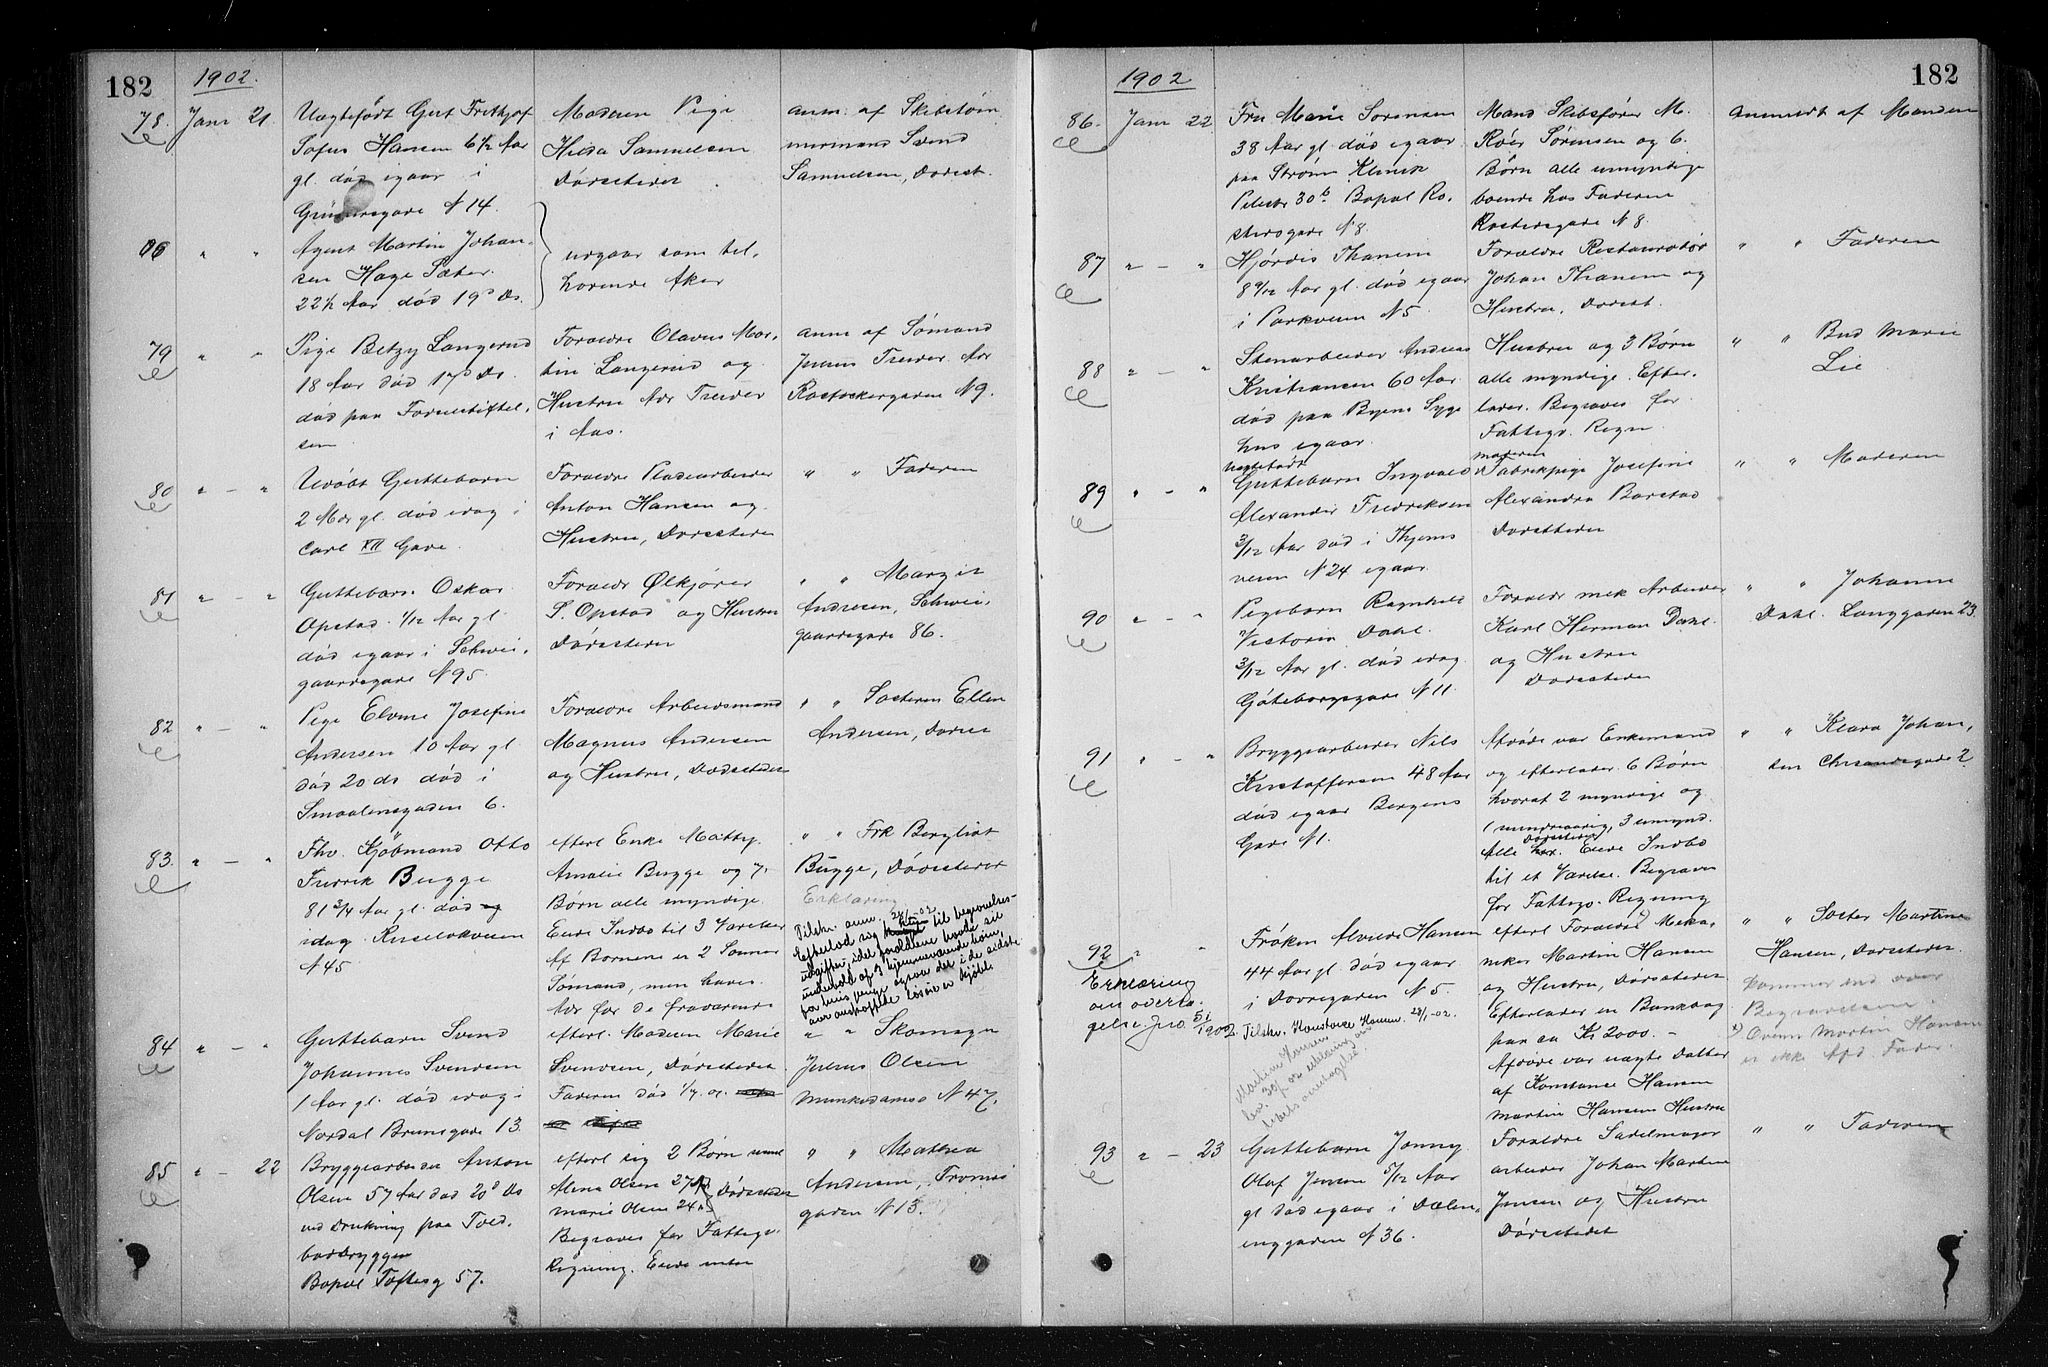 182
1902.
78. Janr 21.
Uægtefödt Gut Frithjof
Sofus Hansen 6 1/2 Aar
gl. död igaar i
Grünersgade N 14.
Moderen Pige
Hilda Samuelsen
Dödsstedet
anm. af Skibstöm
mermand Svend
Samuelsen, Dödsst.
" "
Agent Martin Johan-
sen Hage Sæter.
22 1/2 Aar död 19d Ds.
udgaar som til-
hörende Aker
79 " "
Pige Betzy Langerud
18 Aar död 17d Ds.
död paa Födselsstiftel-
sen
Forældre Olaves Mar-
tin Langerud og
Hustru Adr Treider
i Aas.
anm af Sömand
Jenss Treider Adr
Rostockergaden N 9.
80 " - "
Udöbt Guttebarn
2 Mdr gl. död idag i
Carl XII Gade.
Forældre Pladearbeider
Anton Hansen og
Hustru, Dödsstedet
" " Faderen
81 " - "
Guttebarn Oskar
Opstad 1/12 Aar gl
död igaar i Schwei-
gaardsgade N 95.
Forældr Ølkjörer
S. Opstad og Hustru
Dödsstedet
" " Margit
Andresen, Schwei-
gaardsgade 86.
82 " - "
Pige Elvine Josefine
Andersen 10 Aar gl.
död 20 ds död i
Smaalensgaden 6.
Forældre Arbeidsmand
Magnus Andersen
og Hustru, Dödsstedet
" " Søsteren Ellen
Andersen, Dödsst
83. " - "
Fhv. Kjöbmand Otto
Fredrik Bugge
81 3/4 Aar gl. död
idag. Ruselökveien
N 45
efterl Enke Matty
Amalie Bugge og 7.
Börn alle myndige.
Eiede Indbo til 3 Værelser
Af Börnene er 2 Sönner
Sömænd, men haves
Adr for de fraværende
" " Frk Bergliot
Bugge, Dödsstedet
Erklæring
Tilskr. anm. 28/1-02.
Efterlod sig til begravelses-
udgifter, idet forældrene havde sit
underhold af 3 hjemmeværende börn,
for hvis penge ogsaa det i de sidste
aar anskaffede lösöre er kjöbt.
84 " - "
Guttebarn Svend
Johannes Svendsen
1 Aar gl. död idag i
Nordal Brunsgade 13.
efterl. Moderen Marie
Svendsen, Dödsstedet
Faderen död 1/7. 01.
" " Skomager
Julius Olsen
Munkedamsv N 47.
85 " - 22
Bryggearbeider Anton
Olsen 57 Aar död 20d Ds
ved Drukning paa Told-
bodbryggen
Bopæl Toftesg 57.
efterl sig 2 Börn
Alma Olsen 27 Aar
Marie Olsen 24 " Dödsstedet
Begraves for Fattigv.
Regning. Eiede intet
" " Mathea
Andersen, Tromsö
gaden N 13.
182
1902
86. Janr 22
Fru Marie Sörensen
38 Aar gl. död igaar
paa Ströms Klinik
Pilestr 30b Bopæl Ro-
stedsgade N 8.
Mand Skibsförer M.
Roér Sörensen og 6.
Börn alle umyndige
boende hos Faderen
Rostedsgade N 8.
Anmeldt af Manden
87 " - "
Hjördis Thanem
8 9/12 Aar gl. död igaar
i Parkveien N 5
Forældre Restauratör
Johan Thanem og
Hustru, Dödsst.
" " Faderen
88 " - "
Stenarbeider Andreas
Kristiansen 60 Aar
död paa Byens Syge
hus igaar.
Hustru og 3 Börn
alle myndige. Efter-
lader. Begraves for
Fattigv. Regn.
" " Bud Marie
Lie
89 " - "
uægtefödt
Guttebarn Ingvald
Alexander Fredriksen
3/12 Aar död i Thjems
veien N 24 igaar.
moderen
Fabrikpige Josefine
Alexandra Barstad
Dödsstedet
" " Moderen
90 " - "
Pigebarn Ragnhild
Victoria Dahl.
3/12 Aar gl. död idag.
Göteborggade N 11.
Forældr mek Arbeider
Karl Herman Dahl.
og Hustru
Dödsstedet
" " Johanne
Dahl. Langgaden 23.
91 " - "
Bryggearbeider Nils
Kristoffersen 48 Aar
död igaar Bergens
Gade N 1.
Afdöde var Enkemand
og efterlader 6 Börn
hvoraf 2 myndige og
1 mindreaarig, 3 umynd.
Alle Dödsstedet. Eiede Indbo
til et Værelse. Begraves
for Fattigv. Regning
" " Klara Johan-
sen Chrsandsgade 2.
92 " "
Erklæring
om overta-
gelse. Jno 51/1902
Fröken Alvilde Hansen
44 Aar gl. död igaar
i Dovregaden N 5.
Tilskr. Konstance Hansen 28/1-02.
Martin Hansen
bev. 30/1 02 erklæring om
bobets overtagelse.
efterl Forældre Meka-
niker Martin Hansen
og Hustru, Dödsstedet
Efterlader en Bankbog
paa ca Kr 2000. -
Afdöde var uægte Datter
af Konstance Hansen
Martin Hansens Hustru
" " Söster Martine
Hansen, Dödsstedet.
kommer ind over
Begravelsen.
Ovenn Martin Hansen
er ikke Afd. Fader.
93 " - 23
Guttebarn Jonny
Olaf Jensen 5/12 Aar
gl död igaar i Dælen-
enggaden N 36.
Forældre Sadelmager
arbeider Johan Martin
Jensen og Hustru
Dödsstedet
" " Faderen